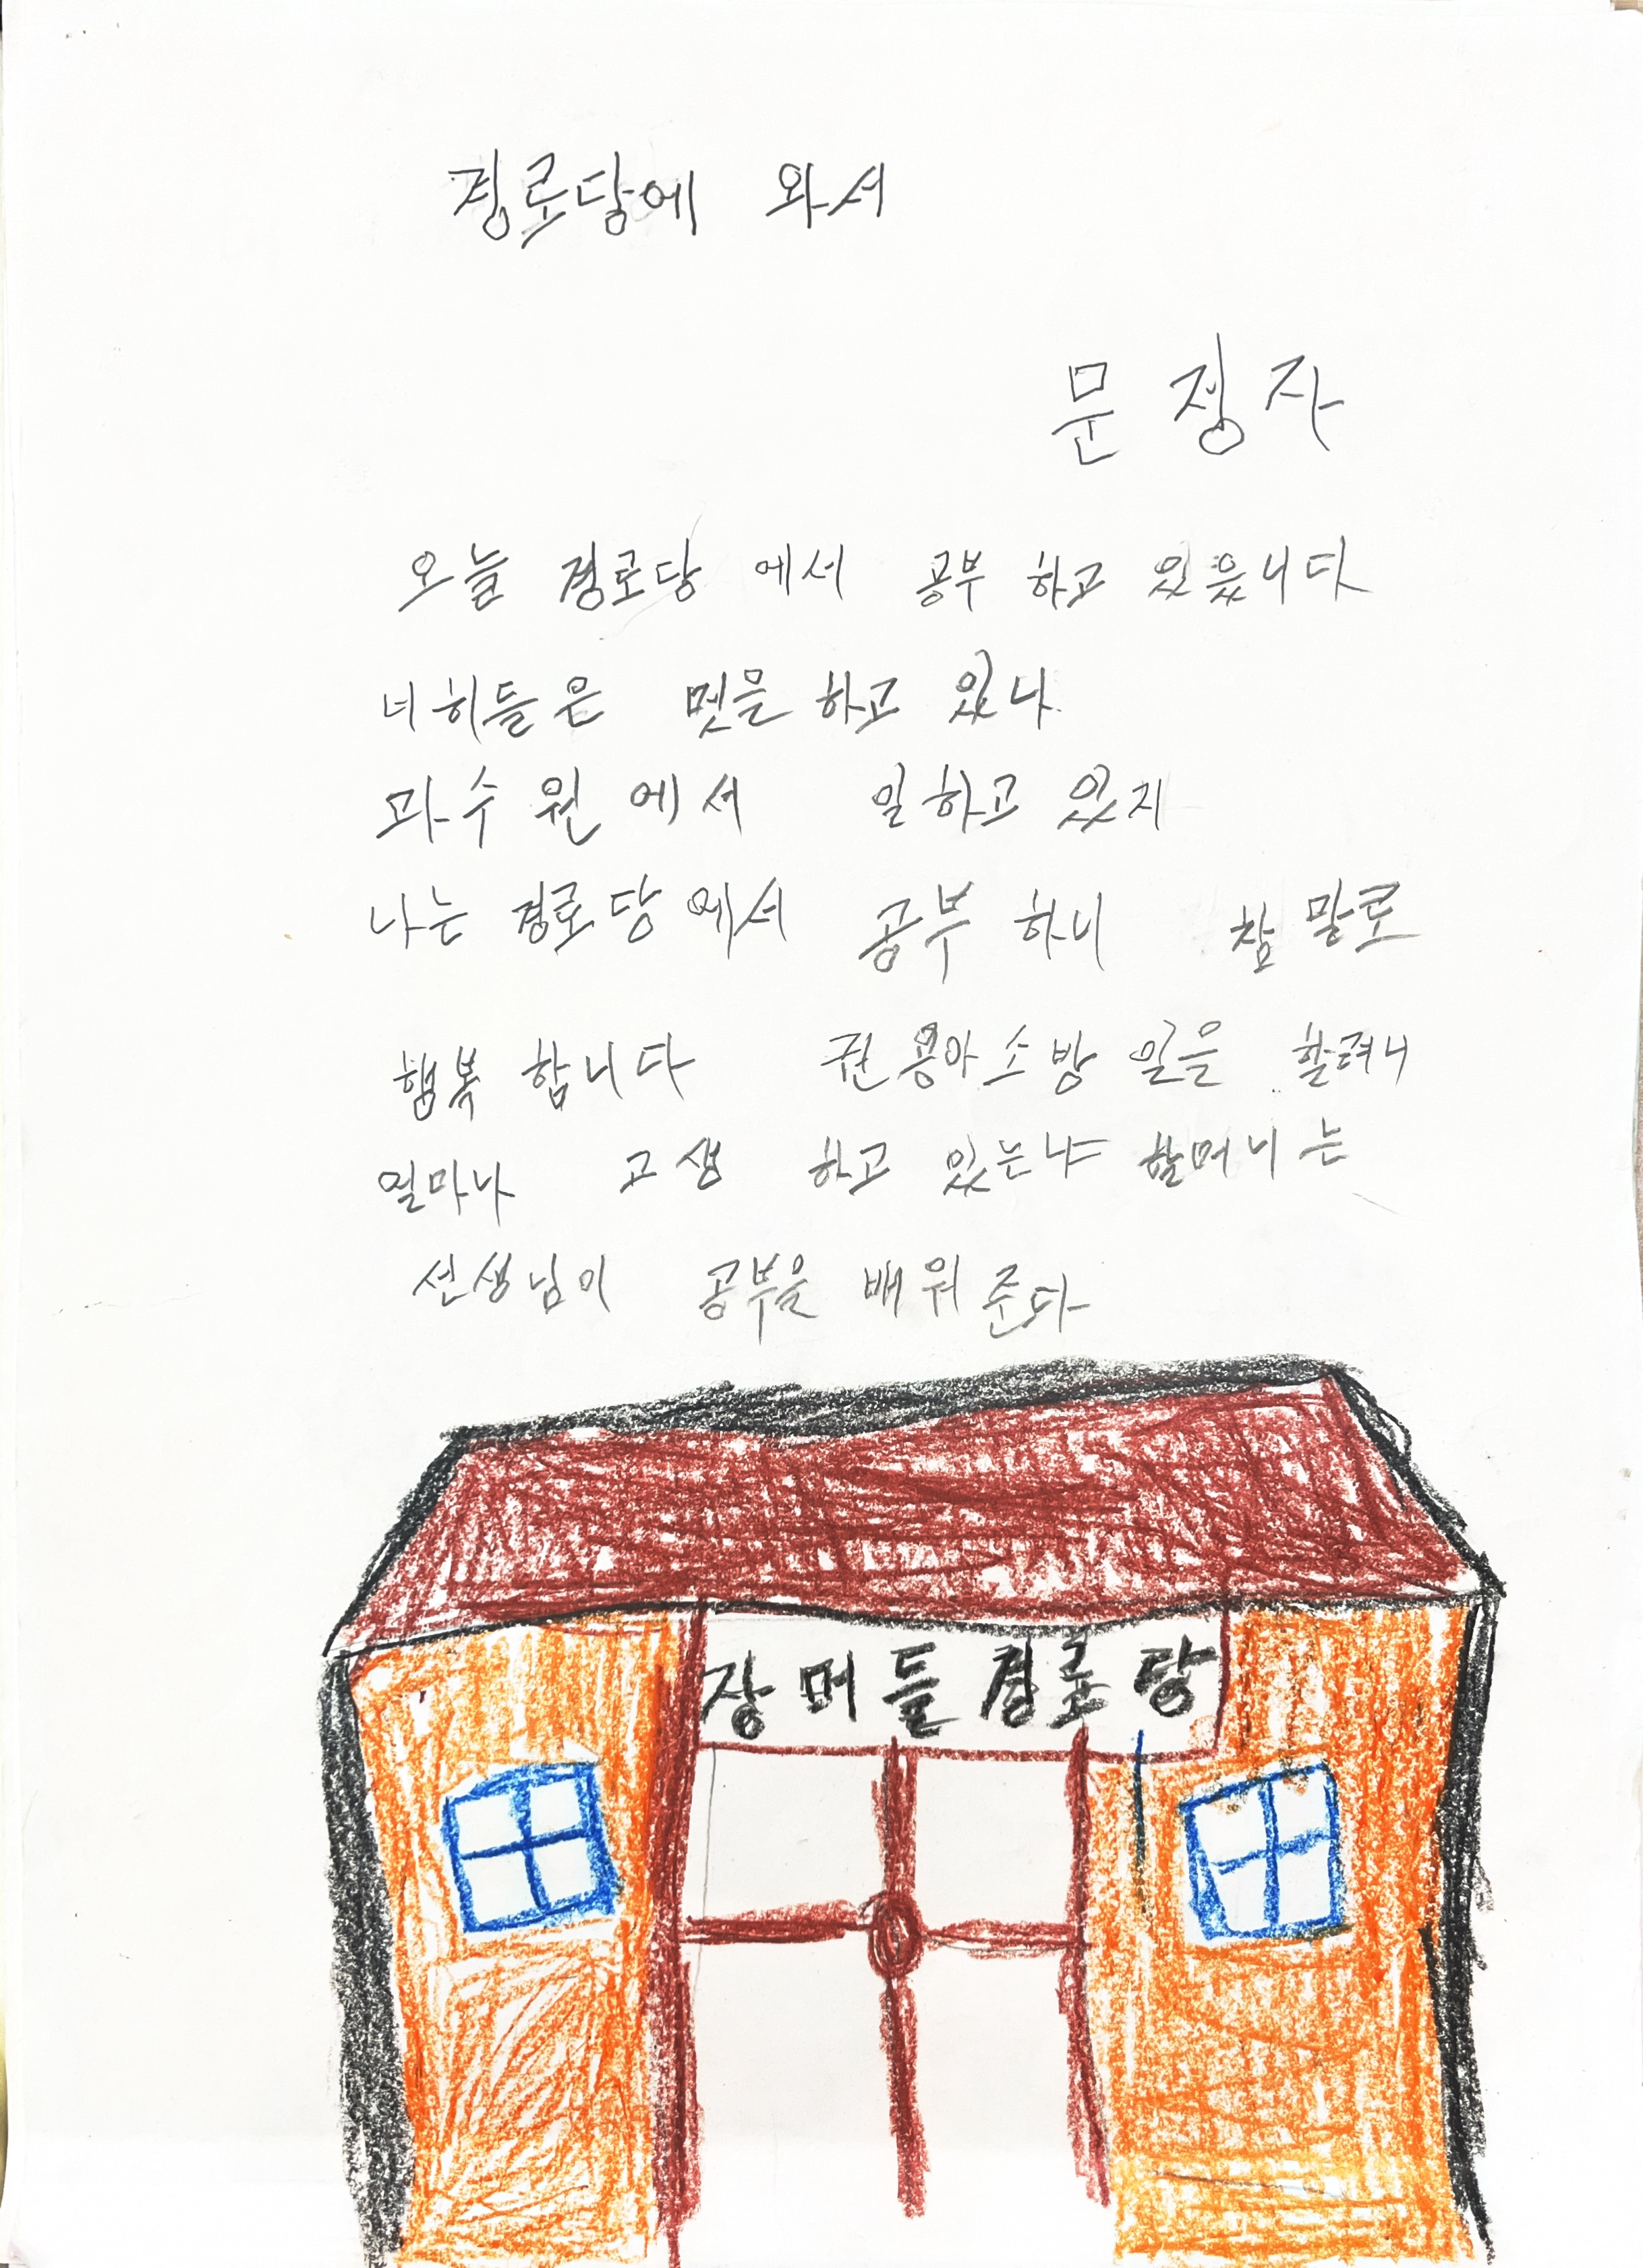 경로당에 와서
문정자
오늘 경로당 에서 공부 하고 있읍니다
너히들은 멋을 하고 있나
과수원에서 일하고 있지
나는 경로당에서 공부 하니 참말로
행복 합니다 권용아소방 일을 할려니
얼마나 고생 하고 있는냐 할머니는
선생님이 공부을 배워준다
장머들경로당